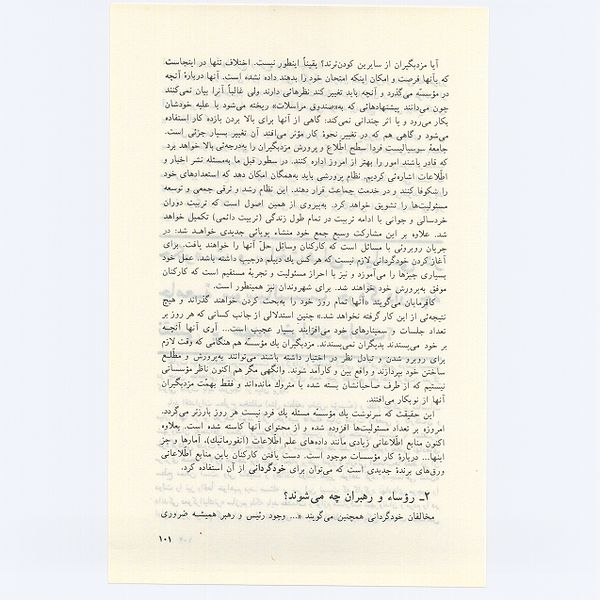 آیا مزدبگیران از سایرین کودن‌ترند؟ یقیناً اینطور نیست. اختلاف تنها در اینجاست
که بآنها فرصت و امکان اینکه امتحان خود را بدهند داده نشده است. آنها دربارهٔ آنچه
در مؤسسه می‌گذرد و آنچه باید تغییر کند نظرهائی دارند ولی غالباً آنرا بیان نمی‌کنند
چون می‌دانند پیشنهادهائی که به«صندوق مراسلات» ریخته می‌شود یا علیه خودشان
بکار می‌رود و یا اثر چندانی نمی‌کند: گاهی از آنها برای بالا بردن بازده کار استفاده
می‌شود و گاهی هم که در تغییر نحوهٔ کار مؤثر می‌افتد آن تغییر بسیار جزئی است.
جامعهٔ سوسیالیست فردا سطح اطلاع و پرورش مزدبگیران را به‌درجه‌ئی بالا خواهد برد
که قادر باشند امور را بهتر از امروز اداره کنند. در سطور قبل ما به‌مسئله نشر اخبار و
اطلاعات اشاره‌ئی کردیم. نظام پرورشی باید به‌همگان امکان دهد که استعدادهای خود
را شکوفا کنند و در خدمت جماعت قرار دهند. این نظام رشد و ترقی جمعی و توسعه
مسئولیت‌ها را تشویق خواهد کرد. به‌پیروی از همین اصول است که تربیت دوران
خردسالی و جوانی با ادامه تربیت در تمام طول زندگی (تربیت دائمی) تکمیل خواهد
شد. علاوه بر این مشارکت وسیع جمع خود منشاء پویائی جدیدی خواهـد شد: در
جریان روبروئی با مسائل است که کارکنان وسائل حلّ آنها را خواهند یافت. برای
آغاز کردن خودگردانی لازم نیست که هر کس یك دیپلم درجیب داشته باشد. عمل خود
بسیاری چیزها را می‌آموزد و نیز با احراز مسئولیت و تجربهٔ مستقیم است که کارکنان
موفق به‌پرورش خود خواهند شد. برای شهروندان نیز همینطور است.
کافرمایان می‌گویند «آنها تمام روز خود را به‌بحث کردن خواهند گذراند و هیچ
نتیجه‌ئی از این کار گرفته نخواهد شد.» چنین استدلالی از جانب کسانی که هر روز بر
تعداد جلسات و سمینارهای خود می‌افزایند بسیار عجیب است... آری آنها آنچـه
بر خود می‌پسندند بدیگران نمی‌پسندند. مزدبگیران یك مؤسسه هم هنگامی که وقت لازم
برای روبرو شدن و تبادل نظر در اختیار داشته باشند می‌توانند به‌پرورش و مطلـع
ساختن خود بپردازند و واقع بین و کارآمد شوند. وانگهی مگر هم اکنون ناظر مؤسساتی
نیستیم که از طرف صاحبانشان بسته شده یا متروك مانده‌اند و فقط بهمّت مزدبگیران
آنها از نوبکار می‌افتند.
این حقیقت که سرنوشت یك مؤسسه مسئله یك فرد نیست هر روز بارزتر می‌گردد.
امروزه بر تعداد مسئولیت‌ها افزوده شده و از محتوای آنها کاسته شده است. بعلاوه
اکنون منابع اطلاعاتی زیادی مانند داده‌های علم اطلاعات (انفورماتیك)، آمارها و جز
اینها... دربارهٔ کار مؤسسات موجود است. دست یافتن کارکنان باین منابع اطلاعاتی
ورق‌های برندهٔ جدیدی است که می‌توان برای خودگردانی از آن استفاده کرد.
۲ـ رؤساء و رهبران چه می‌شوند؟
مخالفان خودگردانی همچنین می‌گویند «... وجود رئیس و رهبر همیشـه ضروری
۱۰۱